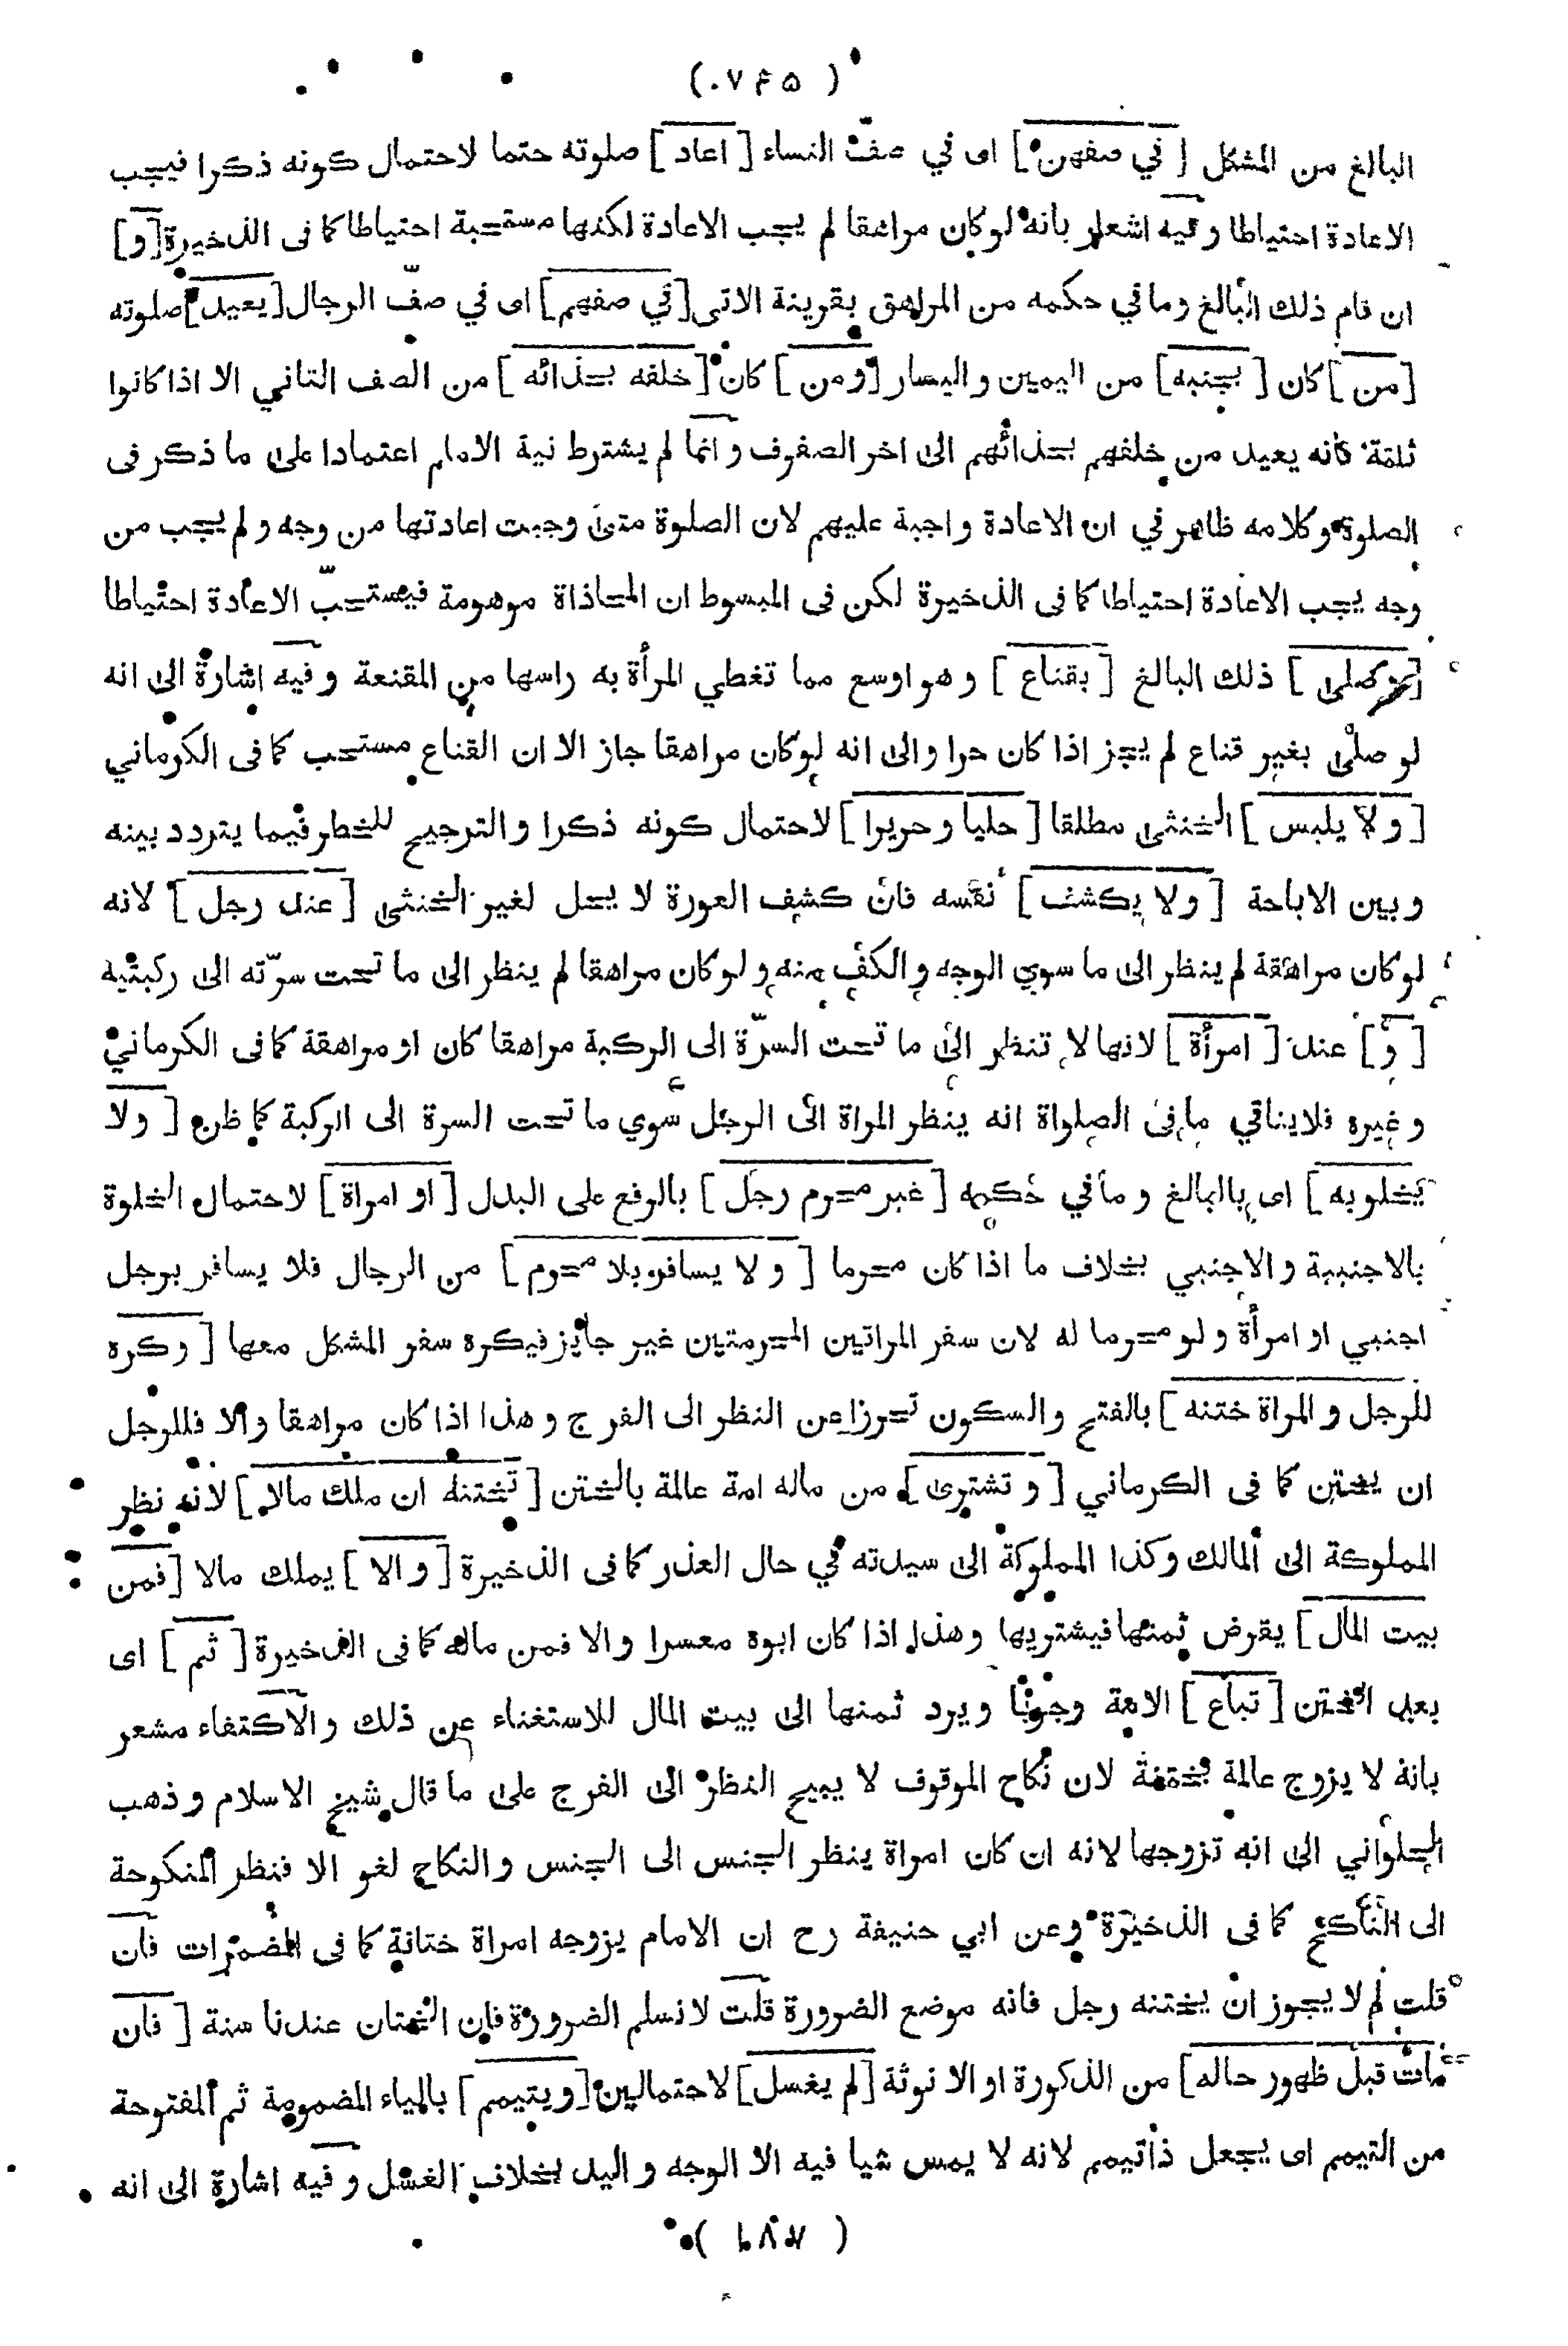 ( ٧۴۵ )
البالغ من المشكل [ في صفهن ] اى في صفّ النساء [ اعاد ] صلوته حتما لاحتمال كونه ذكرا فيجب
الاعادة احتياطا وفيه اشعار بانه لوكان مراهقا لم يجب الاعادة لكنها مستحبة احتياطا كما فى الذخيرة [ و ]
ان قام ذلك البالغ وما في حكمه من المراهق بقرينة الاتى [ في صفهم ] اى في صفّ الرجال [ يعيد ] صلوته
[ من ] كان [ بجنبه ] من اليمين واليسار [ ومن ] كان [ خلفه بحذائه ] من الصف الثاني الا اذا كانوا
ثلثة فانه يعيد من خلفهم بحذائهم الى اخر الصفوف وانما لم يشترط نية الامام اعتمادا على ما ذكر فى
الصلوة وكلامه ظاهر في ان الاعادة واجبة عليهم لان الصلوة متى وجبت اعادتها من وجه ولم يجب من
وجه يجب الاعادة احتياطا كما فى الذخيرة لكن فى المبسوط ان المحاذاة موهومة فيستحبّ الاعادة احتياطا
[ وصلى ] ذلك البالغ [ بقناع ] وهو اوسع مما تغطي المرأة به راسها من المقنعة وفيه اشارة الى انه
لو صلى بغير قناع لم يجز اذا كان حرا والى انه لوكان مراهقا جاز الا ان القناع مستحب كما فى الكرماني
[ ولا يلبس ] الخنثى مطلقا [ حليا وحريرا ] لاحتمال كونه ذكرا والترجيح للخطر فيما يتردد بينه
وبين الاباحة [ ولا يكشف ] نفسه فان كشف العورة لا يحل لغير الخنثى [ عند رجل ] لانه
لوكان مراهقة لم ينظر الى ما سوي الوجه والكف منه ولوكان مراهقا لم ينظر الى ما تحت سرّته الى ركبتيه
[ و ] عند [ امرأة ] لانها لا تنظر الى ما تحت السرّة الى الركبة مراهقا كان او مراهقة كما فى الكرماني
وغيره فلا ينافي ما فى الصلواة انه ينظر المراة الى الرجل سوي ما تحت السرة الى الركبة كما ظن [ ولا
يخلو به ] اى بالبالغ وما في حكمه [ غير محرم رجل ] بالرفع على البدل [ او امراة ] لاحتمال الخلوة
بالاجنبية والاجنبي بخلاف ما اذا كان محرما [ ولا يسافر بلا محرم ] من الرجال فلا يسافر برجل
اجنبي او امرأة ولو محرما له لان سفر المراتين المحرمتين غير جايز فيكره سفر المشكل معها [ وكره
للرجل والمراة ختنه ] بالفتح والسكون تحرزا عن النظر الى الفرج وهذا اذا كان مراهقا والا فللرجل
ان يختن كما فى الكرماني [ و تشترى ] من ماله امة عالمة بالختن [ تختنه ان ملك مالا ] لانه نظر
المملوكة الى المالك وكذا المملوكة الى سيدته في حال العذر كما فى الذخيرة [ والا ] يملك مالا [ فمن
بيت المال ] يقرض ثمنها فيشتريها وهذا اذا كان ابوه معسرا والا فمن ماله كما فى الذخيرة [ ثم ] اى
بعد الختن [ تباع ] الامة وجوبا ويرد ثمنها الى بيت المال للاستغناء عن ذلك والاكتفاء مشعر
بانه لا يزوج عالمة بختنه لان نكاح الموقوف لا يبيح النظر الى الفرج على ما قال شيخ الاسلام وذهب
الحلواني الى انه تزوجها لانه ان كان امراة ينظر الجنس الى الجنس والنكاح لغو الا فنظر المنكوحة
الى الناكح كما فى الذخيرة وعن ابي حنيفة رح ان الامام يزوجه امراة ختانة كما فى المضمرات فان
قلت لم لا يجوز ان يختنه رجل فانه موضع الضرورة قلت لا نسلم الضرورة فان الختان عندنا سنة [ فان
مات قبل ظهور حاله ] من الذكورة او الانوثة [ لم يغسل ] لاحتمالين [ ويتيمم ] بالياء المضمومة ثم المفتوحة
من التيمم اى يجعل ذاتيمم لانه لا يمس شيا فيه الا الوجه واليد بخلاف الغسل وفيه اشارة الى انه